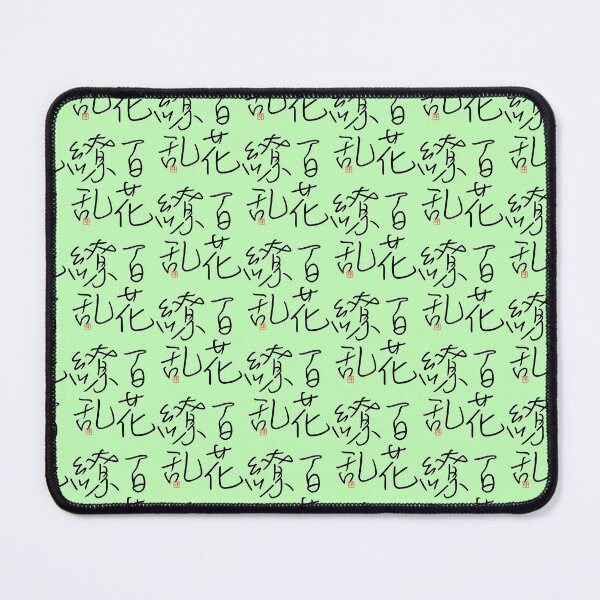 乱花繚百乱花繚百乱花繚
繚百乱花繚百乱花繚百乱
乱花繚百乱花繚百乱花繚
繚百乱花繚百乱花繚百乱
乱花繚百乱花繚百乱花繚
繚百乱花繚百乱花繚百乱
乱花繚百乱花繚百乱花繚
繚百乱花繚百乱花繚百乱